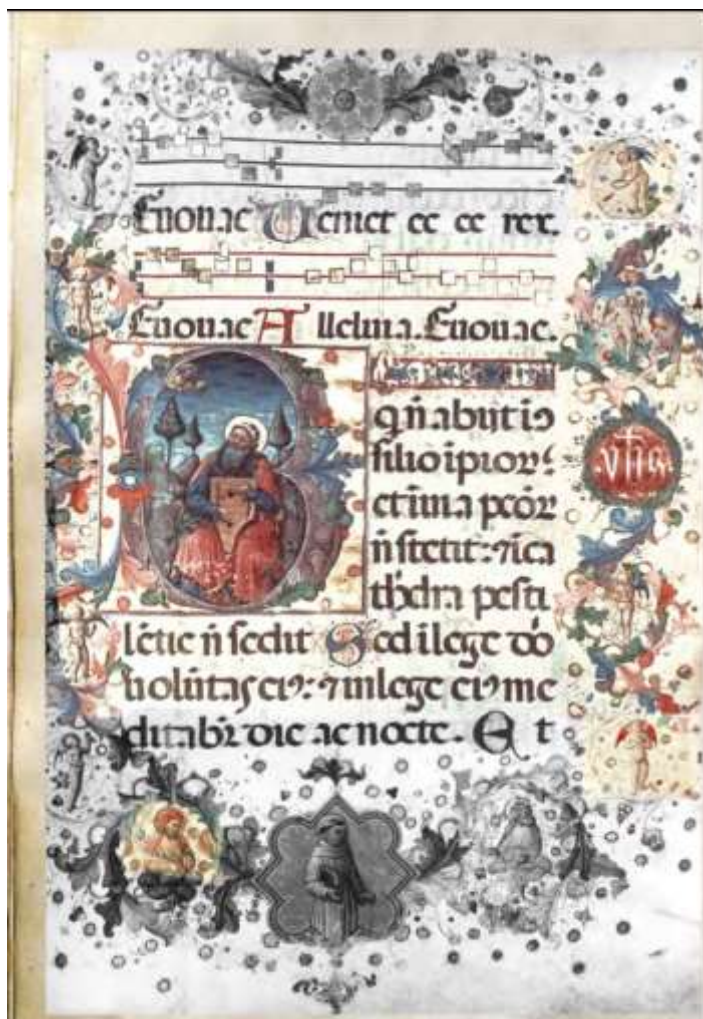 Euouae Uenite ex ex rex.
Euouae Alleluia. Euouae.
B
qñ abijt iɔ
silio ipior᷑
et i uia pcõr
ñ stetit: ⁊ i ca
thedra pesti
lẽtie ñ sedit Sed i lege dõ
uolũtas eiꝰ: ⁊ in lege eiꝰ me
ditabit᷑ die ac nocte. Et